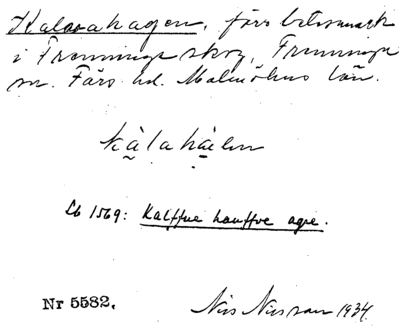 Kalvahagen, förr betesmark
i Fränninge skog, Fränninge
sn. Färs hd. Malmöhus län.
kàlahàen
Lb 1569: Kalffue hauffve agre.
Nr 5582.
Nils Nilsson 1934.